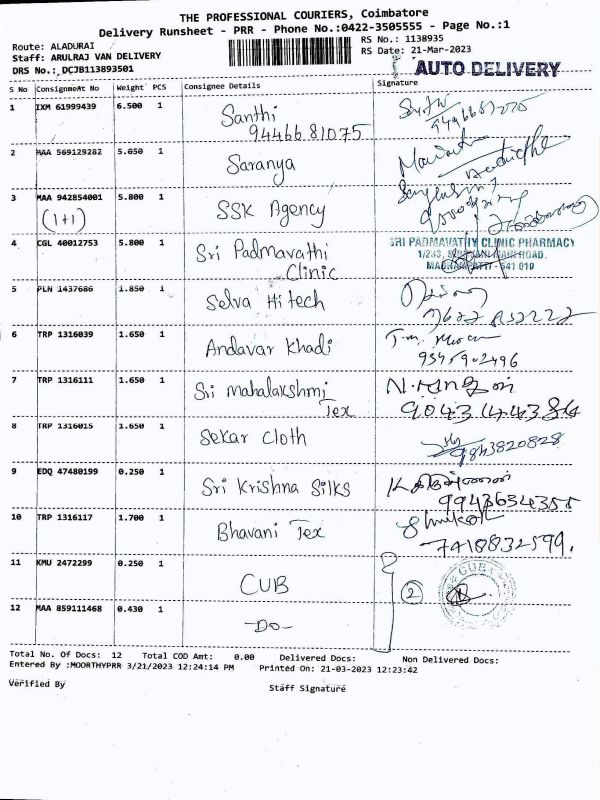 THE PROFESSIONAL COURIERS, Coimbatore
Delivery Runsheet - PRR - Phone No.:0422-3505555 - Page No.:1
Route: ALADURAI
RS No.: 1138935
Staff: ARULRAJ VAN DELIVERY
RS Date: 21-Mar-2023
DRS No.: DCJB113893501
AUTO DELIVERY
S No Consignment No Weight PCS Consignee Details Signature
1 IXM 61999439 6.500 1 Santhi
94466 81075
2 MAA 569129282 5.050 1 Saranya
3 MAA 942854001 5.800 1 SSK Agency
(1+1)
4 CGL 40012753 5.800 1 Sri Padmavathi
Clinic
SRI PADMAVATHY CLINIC PHARMACY
5 PLN 1437686 1.850 1 Selva Hitech
6 TRP 1316039 1.650 1 Andavar Khadi
9345902496
7 TRP 1316111 1.650 1 Sri mahalakshmi
Tex
9043144384
8 TRP 1316015 1.650 1 Sekar Cloth
9843820828
9 EDQ 47480199 0.250 1 Sri Krishna Silks
9943634355
10 TRP 1316117 1.700 1 Bhavani Tex
7418832599.
11 KMU 2472299 0.250 1 CUB
2
CUB
12 MAA 859111468 0.430 1 -DO-
Total No. Of Docs: 12 Total COD Amt: 0.00 Delivered Docs: Non Delivered Docs:
Entered By :MOORTHYPRR 3/21/2023 12:24:14 PM Printed On: 21-03-2023 12:23:42
Verified By
Staff Signature